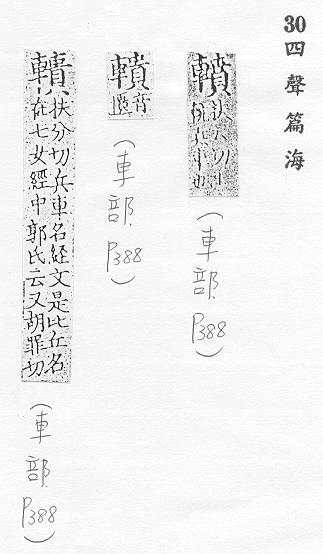 30四聲篇海
轒扶分切
兵車也
(車部.P388)
音
匱
(車部.P388)
扶分切兵車名経文是比丘名
在七女經中郭氏云又胡罪切
(車部.P388)